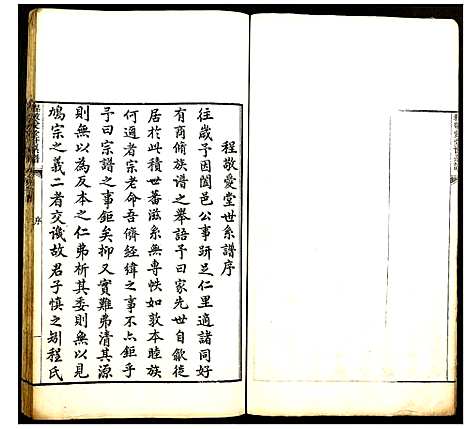 程敬愛堂世系譜序
往歲予因闔邑公事跰足仁里適諸同好
有商脩族譜之舉語予曰家先世自歙徙
居於此積世蕃滋系無專帙如敦本睦族
何適者宗老命吾儕經緯之事不亦鉅乎
予曰宗譜之事鉅矣抑又實難弗清其源
則無以為反本之仁弗析其委則無以見
鳩宗之義二者交譏故君子慎之矧程氏
序
一